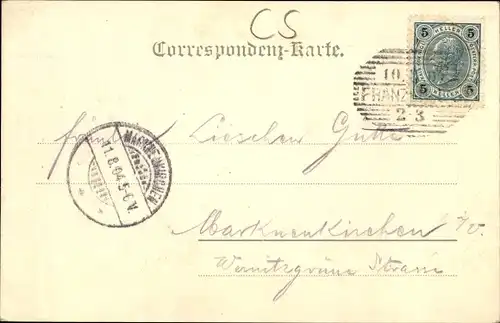 CS
Correspondenz-Karte.
5 HELLER 5
5 HELLER 5
10.
FRANZ
2-3
Fräul. Lieschen Gütte
MARKNEUKIRCHEN
11.8.04. 5-6 V.
Markneukirchen i/V.
Wernitzgrüne Strasse